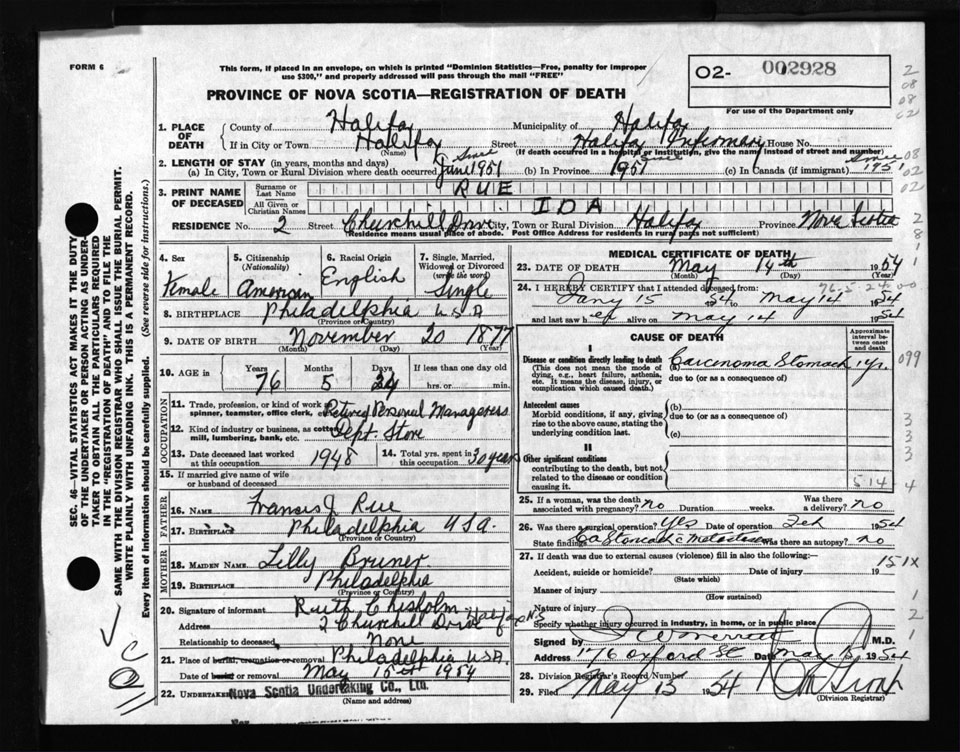 FORM 6
This form, if placed in an envelope, on which is printed "Dominion Statistics—Free, penalty for improper
use $300," and properly addressed will pass through the mail "FREE"
O2- 002928
PROVINCE OF NOVA SCOTIA—REGISTRATION OF DEATH
For use of the Department only
1. PLACE OF DEATH County of Halifax Municipality of Halifax
If in City or Town Halifax Street Halifax Infirmary House No.
(Name) (If death occurred in a hospital or institution, give the name instead of street and number)
2. LENGTH OF STAY (in years, months and days)
(a) In City, Town or Rural Division where death occurred Since June 1951 (b) In Province Since 1951 (c) In Canada (if immigrant) Since 1951
3. PRINT NAME OF DECEASED Surname or Last Name RUE
All Given or Christian Names IDA
RESIDENCE No. 2 Street Churchill Drive City, Town or Rural Division Halifax Province Nova Scotia
(Residence means usual place of abode. Post Office Address for residents in rural parts not sufficient)
4. Sex Female
5. Citizenship (Nationality) American
6. Racial Origin English
7. Single, Married, Widowed or Divorced (write the word) Single
8. BIRTHPLACE Philadelphia U.S.A
(Province or Country)
9. DATE OF BIRTH November 20 1877
(Month) (Day) (Year)
10. AGE in Years 76 Months 5 Days 24 If less than one day old
hrs. or min.
OCCUPATION
11. Trade, profession, or kind of work as
spinner, teamster, office clerk, etc. Retired Personal Manageress
12. Kind of industry or business, as cotton
mill, lumbering, bank, etc. Dept. Store
13. Date deceased last worked
at this occupation 1948
14. Total yrs. spent in
this occupation 30 years
15. If married give name of wife
or husband of deceased
FATHER
16. Name Francis J Rue
17. Birthplace Philadelphia U.S.A.
(Province or Country)
MOTHER
18. MAIDEN NAME Lilly Bruner
19. BIRTHPLACE Philadelphia
(Province or Country)
20. Signature of informant Ruth Chisholm
Address 2 Churchill Drive Halifax N.S
Relationship to deceased None
21. Place of burial, cremation or removal Philadelphia U.S.A.
Date of burial or removal May 15 1954
22. UNDERTAKER Nova Scotia Undertaking Co., Ltd.
(Name and address)
MEDICAL CERTIFICATE OF DEATH
23. DATE OF DEATH May 14th 1954
(Month) (Day) (Year)
24. I HEREBY CERTIFY that I attended deceased from:
Jany 15 54 to May 14 1954
and last saw her alive on May 14 1954
CAUSE OF DEATH
Approximate interval between onset and death
I
Disease or condition directly leading to death
(This does not mean the mode of
dying, e.g., heart failure, asthenia,
etc. It means the disease, injury, or
complication which caused death.)
(a) Carcenoma Stomach 1 yr.
due to (or as a consequence of)
Antecedent causes
Morbid conditions, if any, giving
rise to the above cause, stating the
underlying condition last.
(b)
due to (or as a consequence of)
(c)
II
Other significant conditions
contributing to the death, but not
related to the disease or condition
causing it.
25. If a woman, was the death
associated with pregnancy? no Duration weeks. Was there a delivery? no
26. Was there a surgical operation? Yes Date of operation Feb 1954
State findings Ca Stomach c Metastases Was there an autopsy? no
27. If death was due to external causes (violence) fill in also the following:—
Accident, suicide or homicide? Date of injury 19
(State which)
151X
Manner of injury
(How sustained)
Nature of injury
Specify whether injury occurred in industry, in home, or in public place
Signed by M.D.
Address 176 Oxford St Date May 15 1954
28. Division Registrar's Record Number
29. Filed May 15 1954
(Division Registrar)
SEC. 46—VITAL STATISTICS ACT MAKES IT THE DUTY
OF THE UNDERTAKER OR PERSON ACTING AS UNDER-
TAKER TO OBTAIN ALL THE PARTICULARS REQUIRED
IN THE "REGISTRATION OF DEATH" AND TO FILE THE
SAME WITH THE DIVISION REGISTRAR WHO SHALL ISSUE THE BURIAL PERMIT.
WRITE PLAINLY WITH UNFADING INK. THIS IS A PERMANENT RECORD.
Every item of information should be carefully supplied. (See reverse side for instructions.)